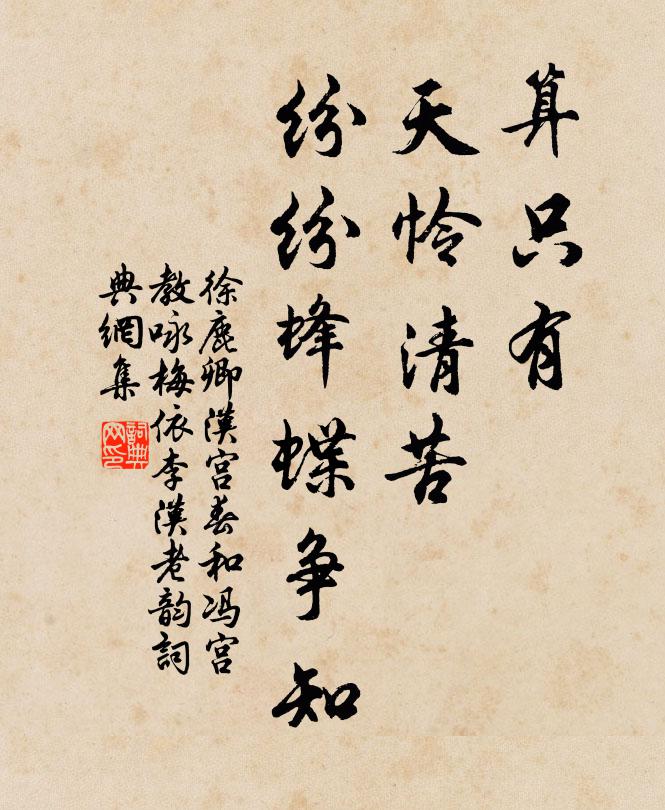 算只有
天怜清苦
纷纷蜂蝶争知
徐鹿卿漢宫春和冯宫
教咏梅依李漢老韵詞
典網集
詞典
网印